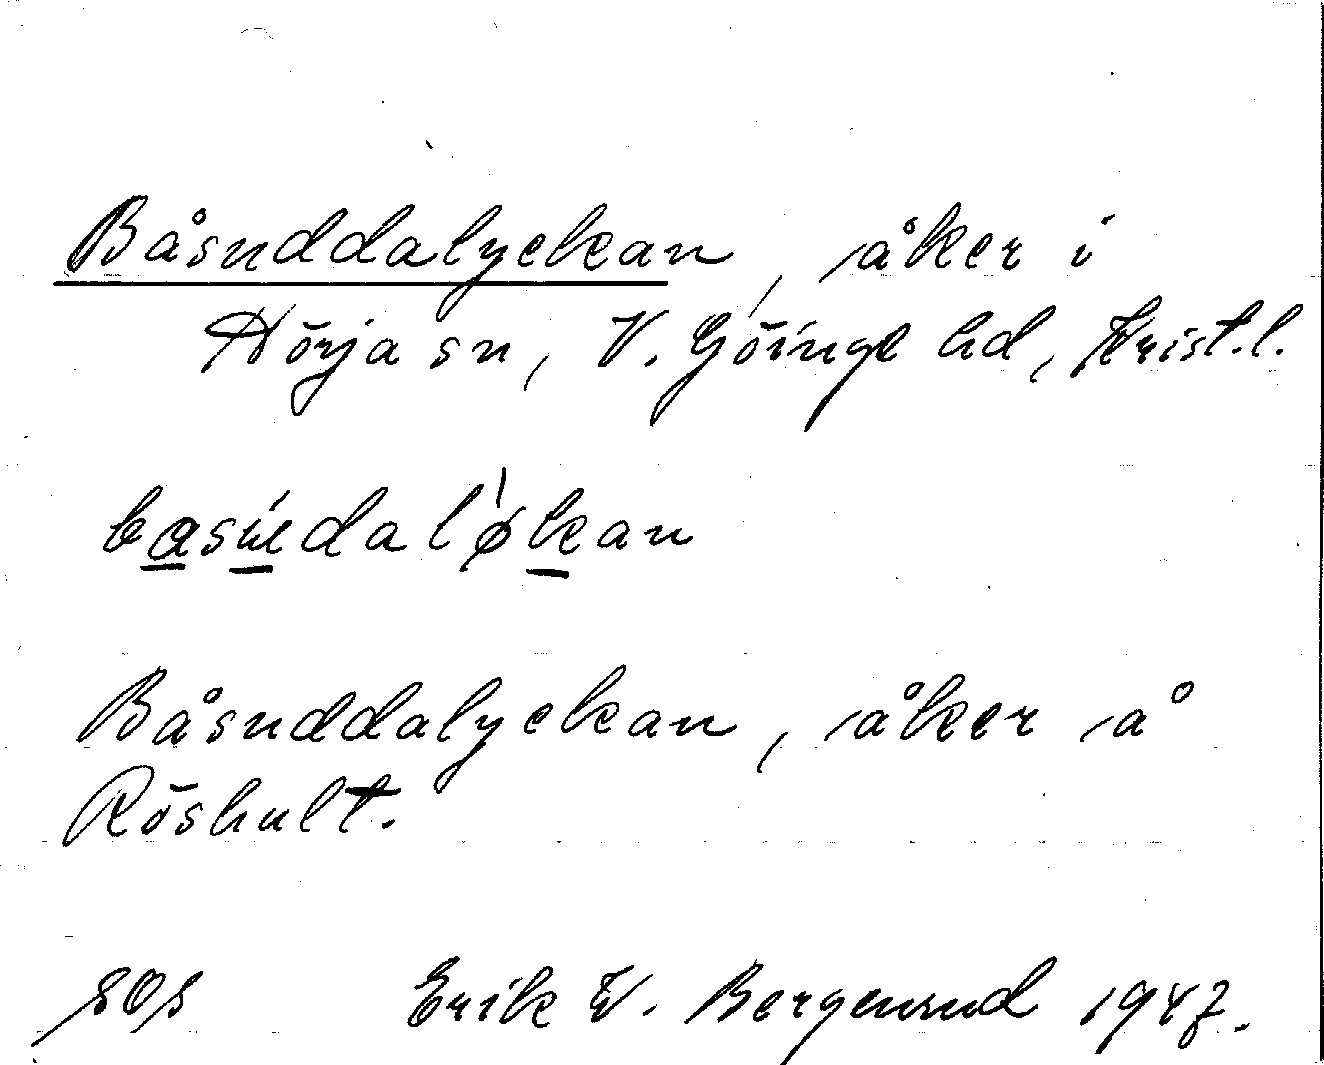 Båsuddalyckan, åker i
Hörja sn, V. Göinge hd, Krist.l.
Båsuddalyckan, åker å
Röshult.
SOS Erik W. Bergensund 1947.